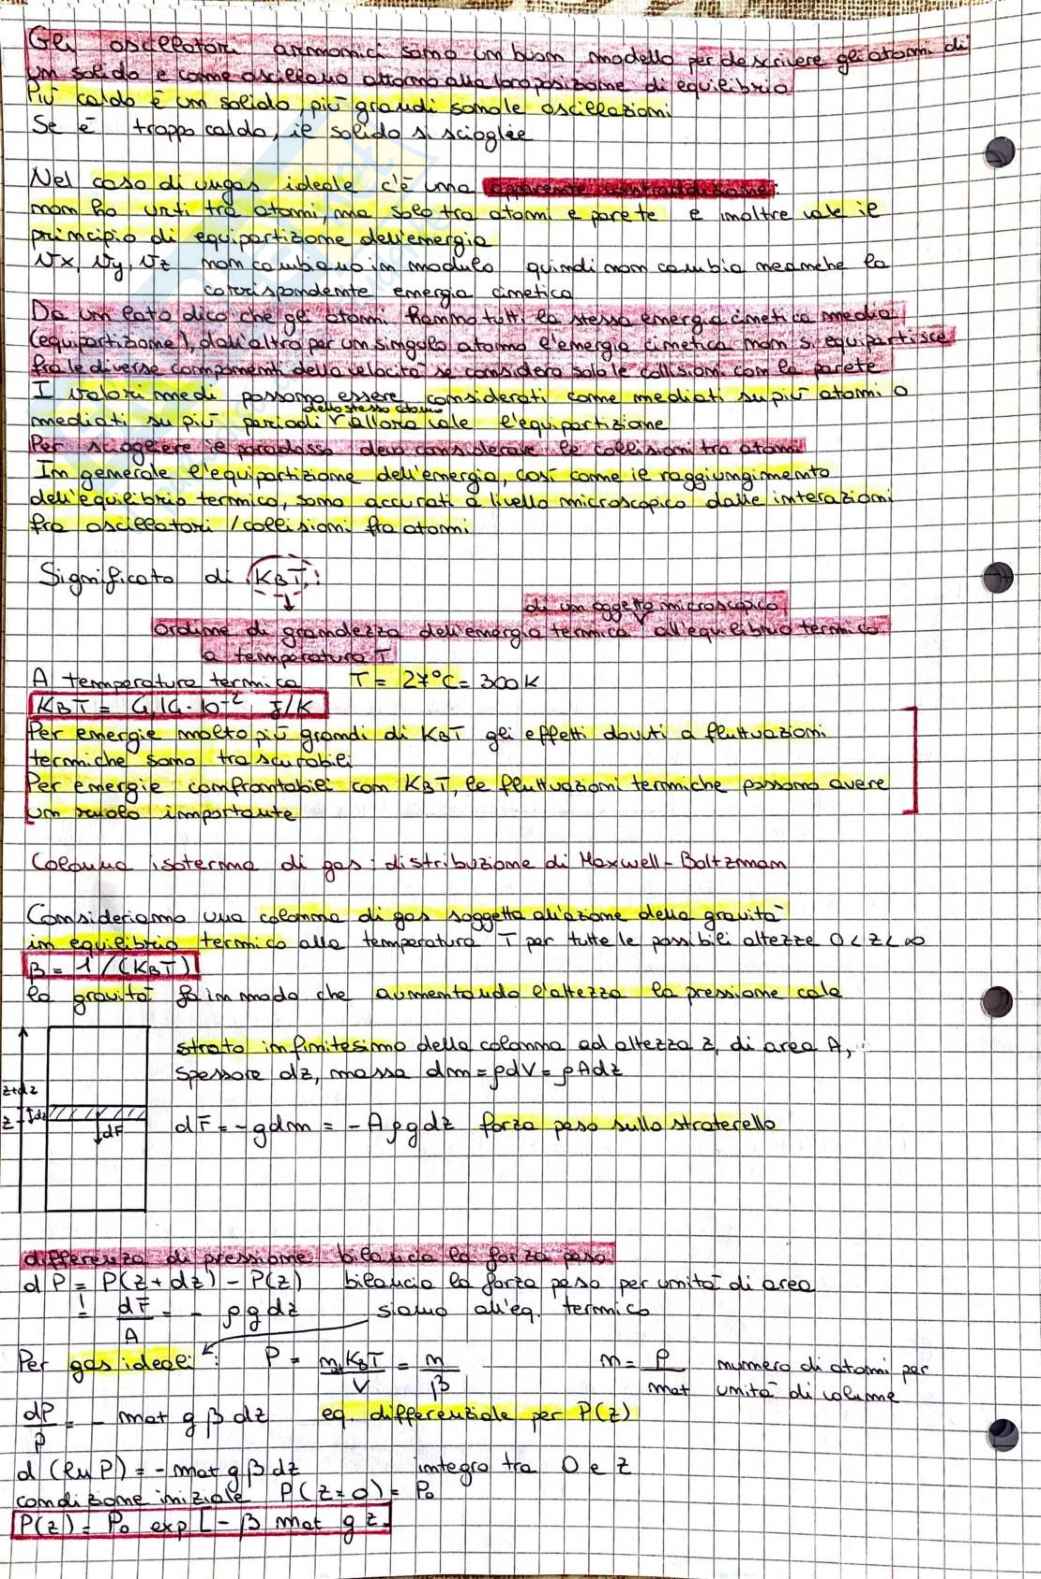 Gli oscillatori armonici sono un buon modello per descrivere gli atomi di
un solido e come oscillano attorno alla loro posizione di equilibrio
Più caldo è un solido, più grandi sono le oscillazioni
Se è troppo caldo, il solido si scioglie
Nel caso di un gas ideale c'è una apparente contraddizione:
non ho urti tra atomi, ma solo tra atomi e parete e inoltre vale il
principio di equipartizione dell'energia
Vx, Vy, Vz non cambiano in modulo quindi non cambia neanche la
corrispondente energia cinetica
Da un lato dico che gli atomi hanno tutti la stessa energia cinetica media
(equipartizione), dall'altro per un singolo atomo l'energia cinetica non si equipartisce
fra le diverse componenti della velocità se considero solo le collisioni con la parete
I valori medi possono essere considerati come mediati su più atomi o
dello stesso atomo
mediati su più periodi allora vale l'equipartizione
Per sciogliere il paradosso devo considerare le collisioni tra atomi
In generale l'equipartizione dell'energia, così come il raggiungimento
dell'equilibrio termico, sono accurati a livello microscopico dalle interazioni
fra oscillatori / collisioni fra atomi
Significato di KBT:
di un oggetto microscopico
ordine di grandezza dell'energia termica all'equilibrio termico
a temperatura T
A temperatura termica T = 27°C = 300K
KBT = 4,14·10⁻² J/K
Per energie molto più grandi di KBT gli effetti dovuti a fluttuazioni
termiche sono trascurabili
Per energie confrontabili con KBT, le fluttuazioni termiche possono avere
un ruolo importante
Colonna isoterma di gas: distribuzione di Maxwell-Boltzmann
Consideriamo una colonna di gas soggetta all'azione della gravità
in equilibrio termico alla temperatura T per tutte le possibili altezze 0<z<∞
β = 1/(KBT)
la gravità fa in modo che aumentando l'altezza la pressione cala
strato infinitesimo della colonna ad altezza z, di area A,
spessore dz, massa dm = ρdV = ρAdz
z+dz
z dz
dF
dF = -gdm = -Aρgdz forza peso sullo straterello
differenza di pressione bilancia la forza peso
dP = P(z+dz) - P(z) bilancia la forza peso per unità di area
! dF/A = - ρgdz siamo all'eq. termico
Per gas ideali: P = nKBT/V = n/β n = ρ/mat numero di atomi per
unità di volume
dP/P = - mat g β dz eq. differenziale per P(z)
d(lnP) = - mat g β dz integro tra 0 e z
condizione iniziale P(z=0) = P₀
P(z) = P₀ exp[-β mat g z]